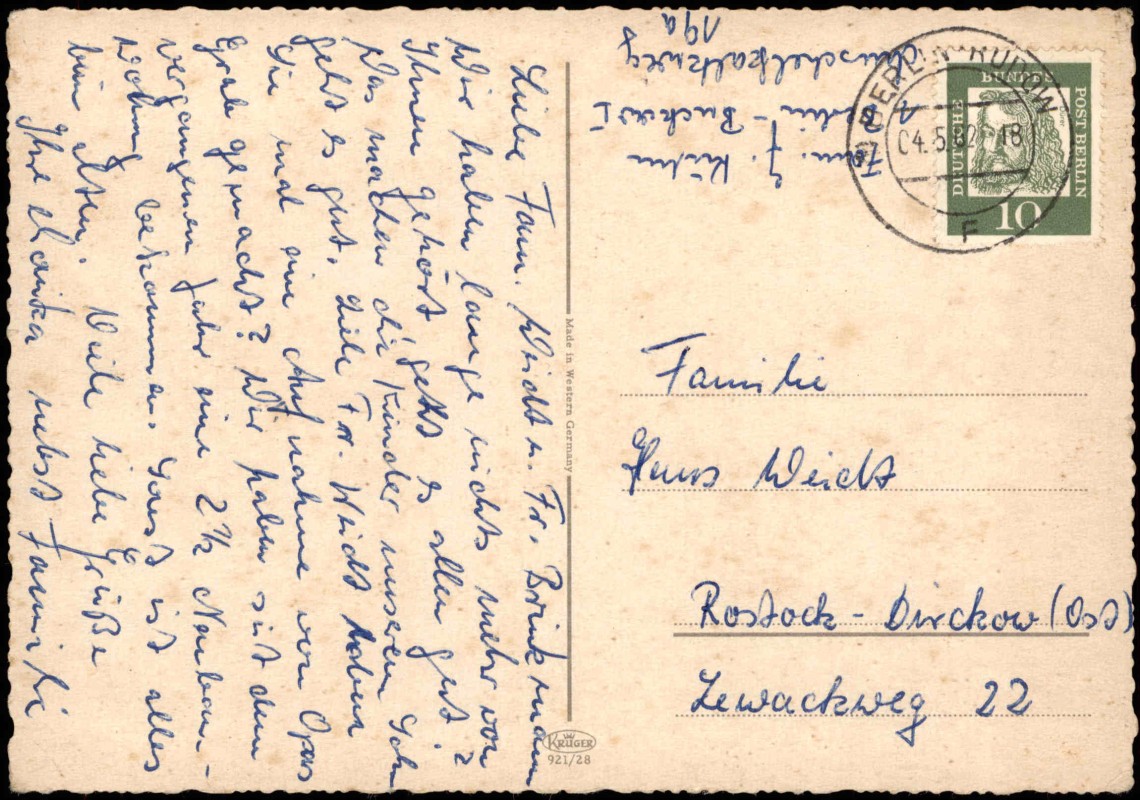 Liebe Fam. Weidt u. Fr. Brinkmann
Wir haben lange nichts mehr von
Ihnen gehört geht es allen gut?
Was machen die Kinder unserem Sohn
geht es gut. Liebe Fr. Weidt haben
Sie mal eine Aufnahme von Opas
Grab gemacht? Wir haben seit dem
vergangenen Jahr eine 2½ Neubau-
wohnung bekommen. Sonst ist alles
beim Alten. Viele liebe Grüße
Ihre nebst Familie
Fam. J. Kühn
1 Berlin - Buckow I
Muschelkalkweg
19a
BERLIN RUDOW
04.5.62 - 18
F
DEUTSCHE
BUNDES
POST BERLIN
10
Familie
Hans Weidt
Rostock - Dirckow (Ost)
Zewackweg 22
Made in Western Germany
KRÜGER
921/28